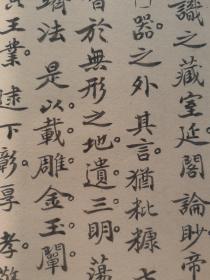 識之藏室延閣論眇帝
器之外其言猶粃糠
於無形之地遺三明蕩
法是以載雕金玉闡
王業逮下彰享孝敬